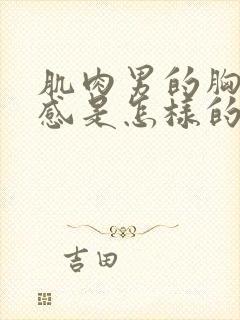 肌肉男的胸
感是怎样的
吉田